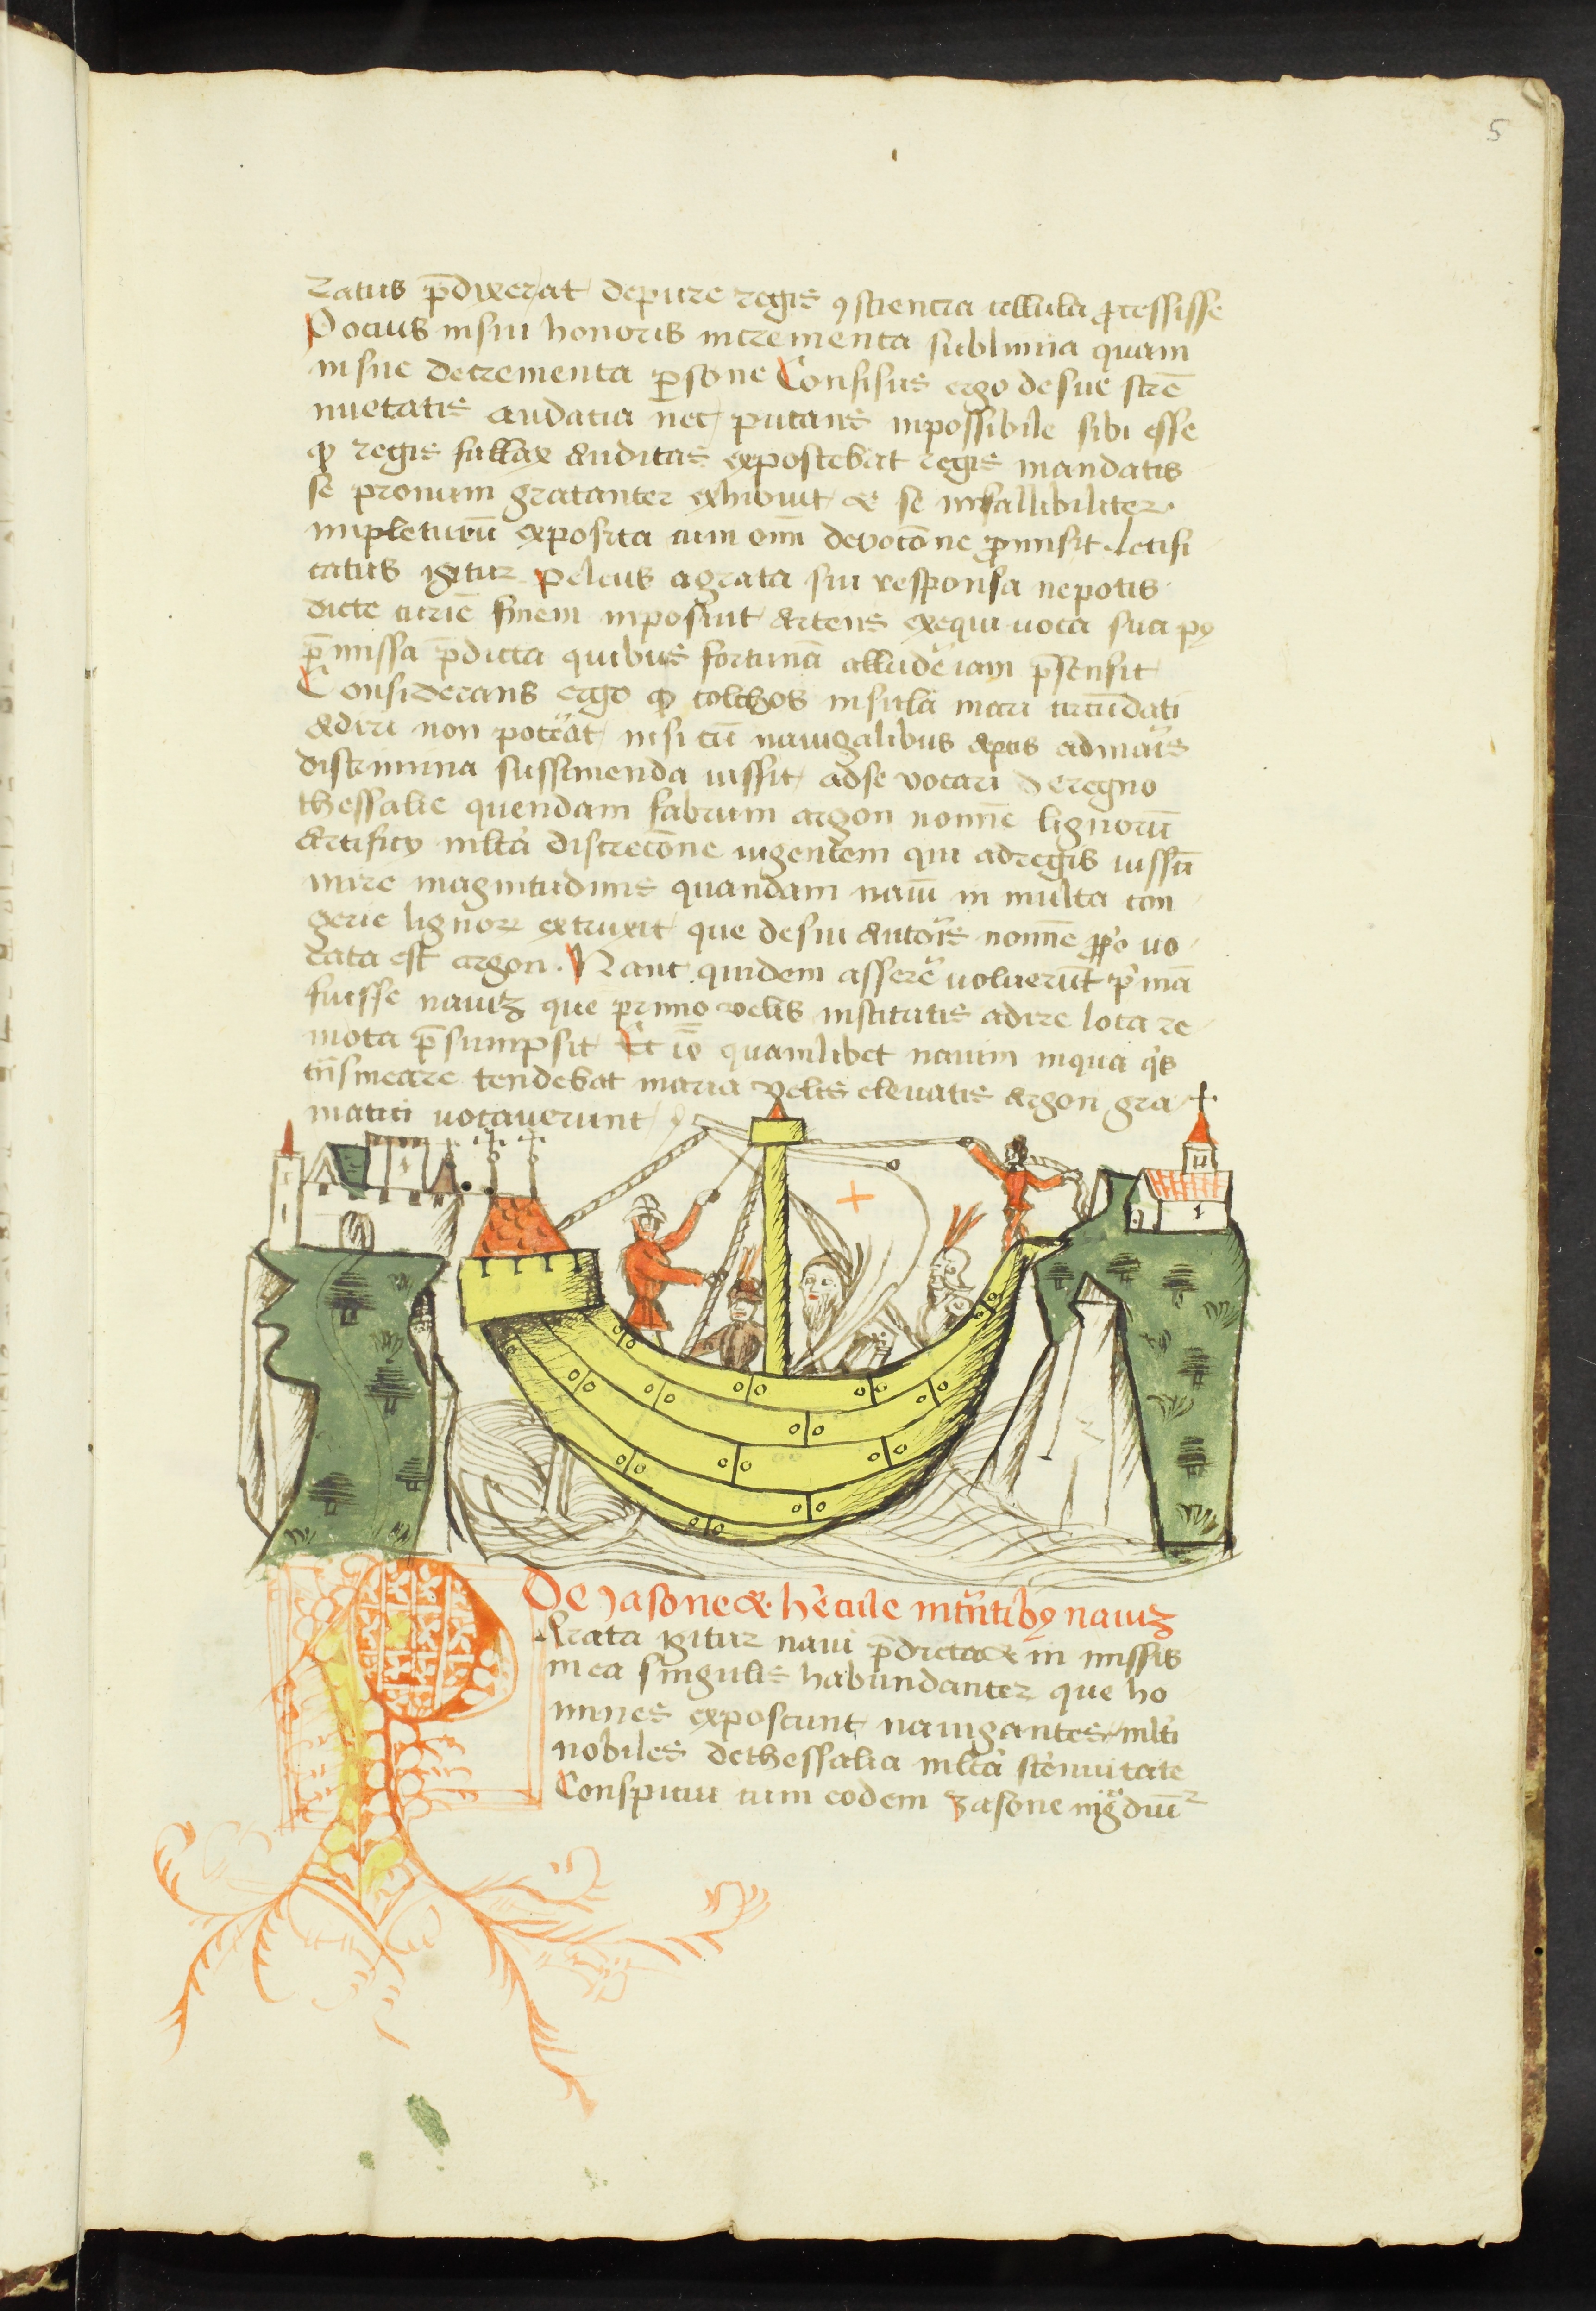 5
ratus p̄dixerat depure regis ꝯsciencia illula ꝓcessisse
Pocius insui honoris incrementa sublimia quam
insue decrementa ꝑsone Confisus ergo desue stre
nuetatis audatia nec putans inpossibile sibi esse
ꝙ regis fallax auditas exposcebat regis mandatis
se pronum gratanter exhibuit & se infallibiliter
impleturū exposita cum om̄i devocōne ꝓmisit. letifi
catus igitur peleus agrata sui responsa nepotis
dicte curie finem inposuit artens exequi uoca sua
p̄missa p̄dicta quibus fortunā alludē iam p̄sensit
Considerans ergo ꝙ colchos insula mari circūdati
adiri non potāt nisi cū nauigalibus aptis admaris
discrimina sufferenda iussit adse vocari deregno
thessalie quendam fabrum argon nomīe lignorū
artificꝫ mlta discrecōne uigentem qui adregis iussū
mire magnitudinis quandam nauī in multa con
gerie lignoꝝ extruxit que desui autoris nomīe ꝓpo uo
cata est argon. Nant quidem assere uoluerūt pimā
fuisse nauiꝫ que primo velis institutis adire loca re
mota p̄sumpsit Et iō quamlibet nauim inqua qis
tn̄smeare tendebat maria velis elevatis argon gra
matici vocauerunt
De Jasone & hercule intn̄tibꝫ nauiꝫ
Arata igitur naui p̄dicta & in missis
in ea singulis habundanter que ho
mines exposcunt nauigantes mlti
nobiles dethessalia mlta strenuitate
Conspicui cum eodem Jasone ingdiūt᷑